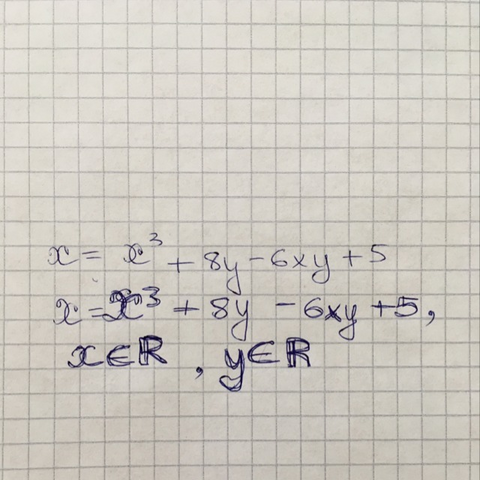 x = x³ + 8y - 6xy + 5
x = x³ + 8y - 6xy + 5,
x ∈ ℝ, y ∈ ℝ